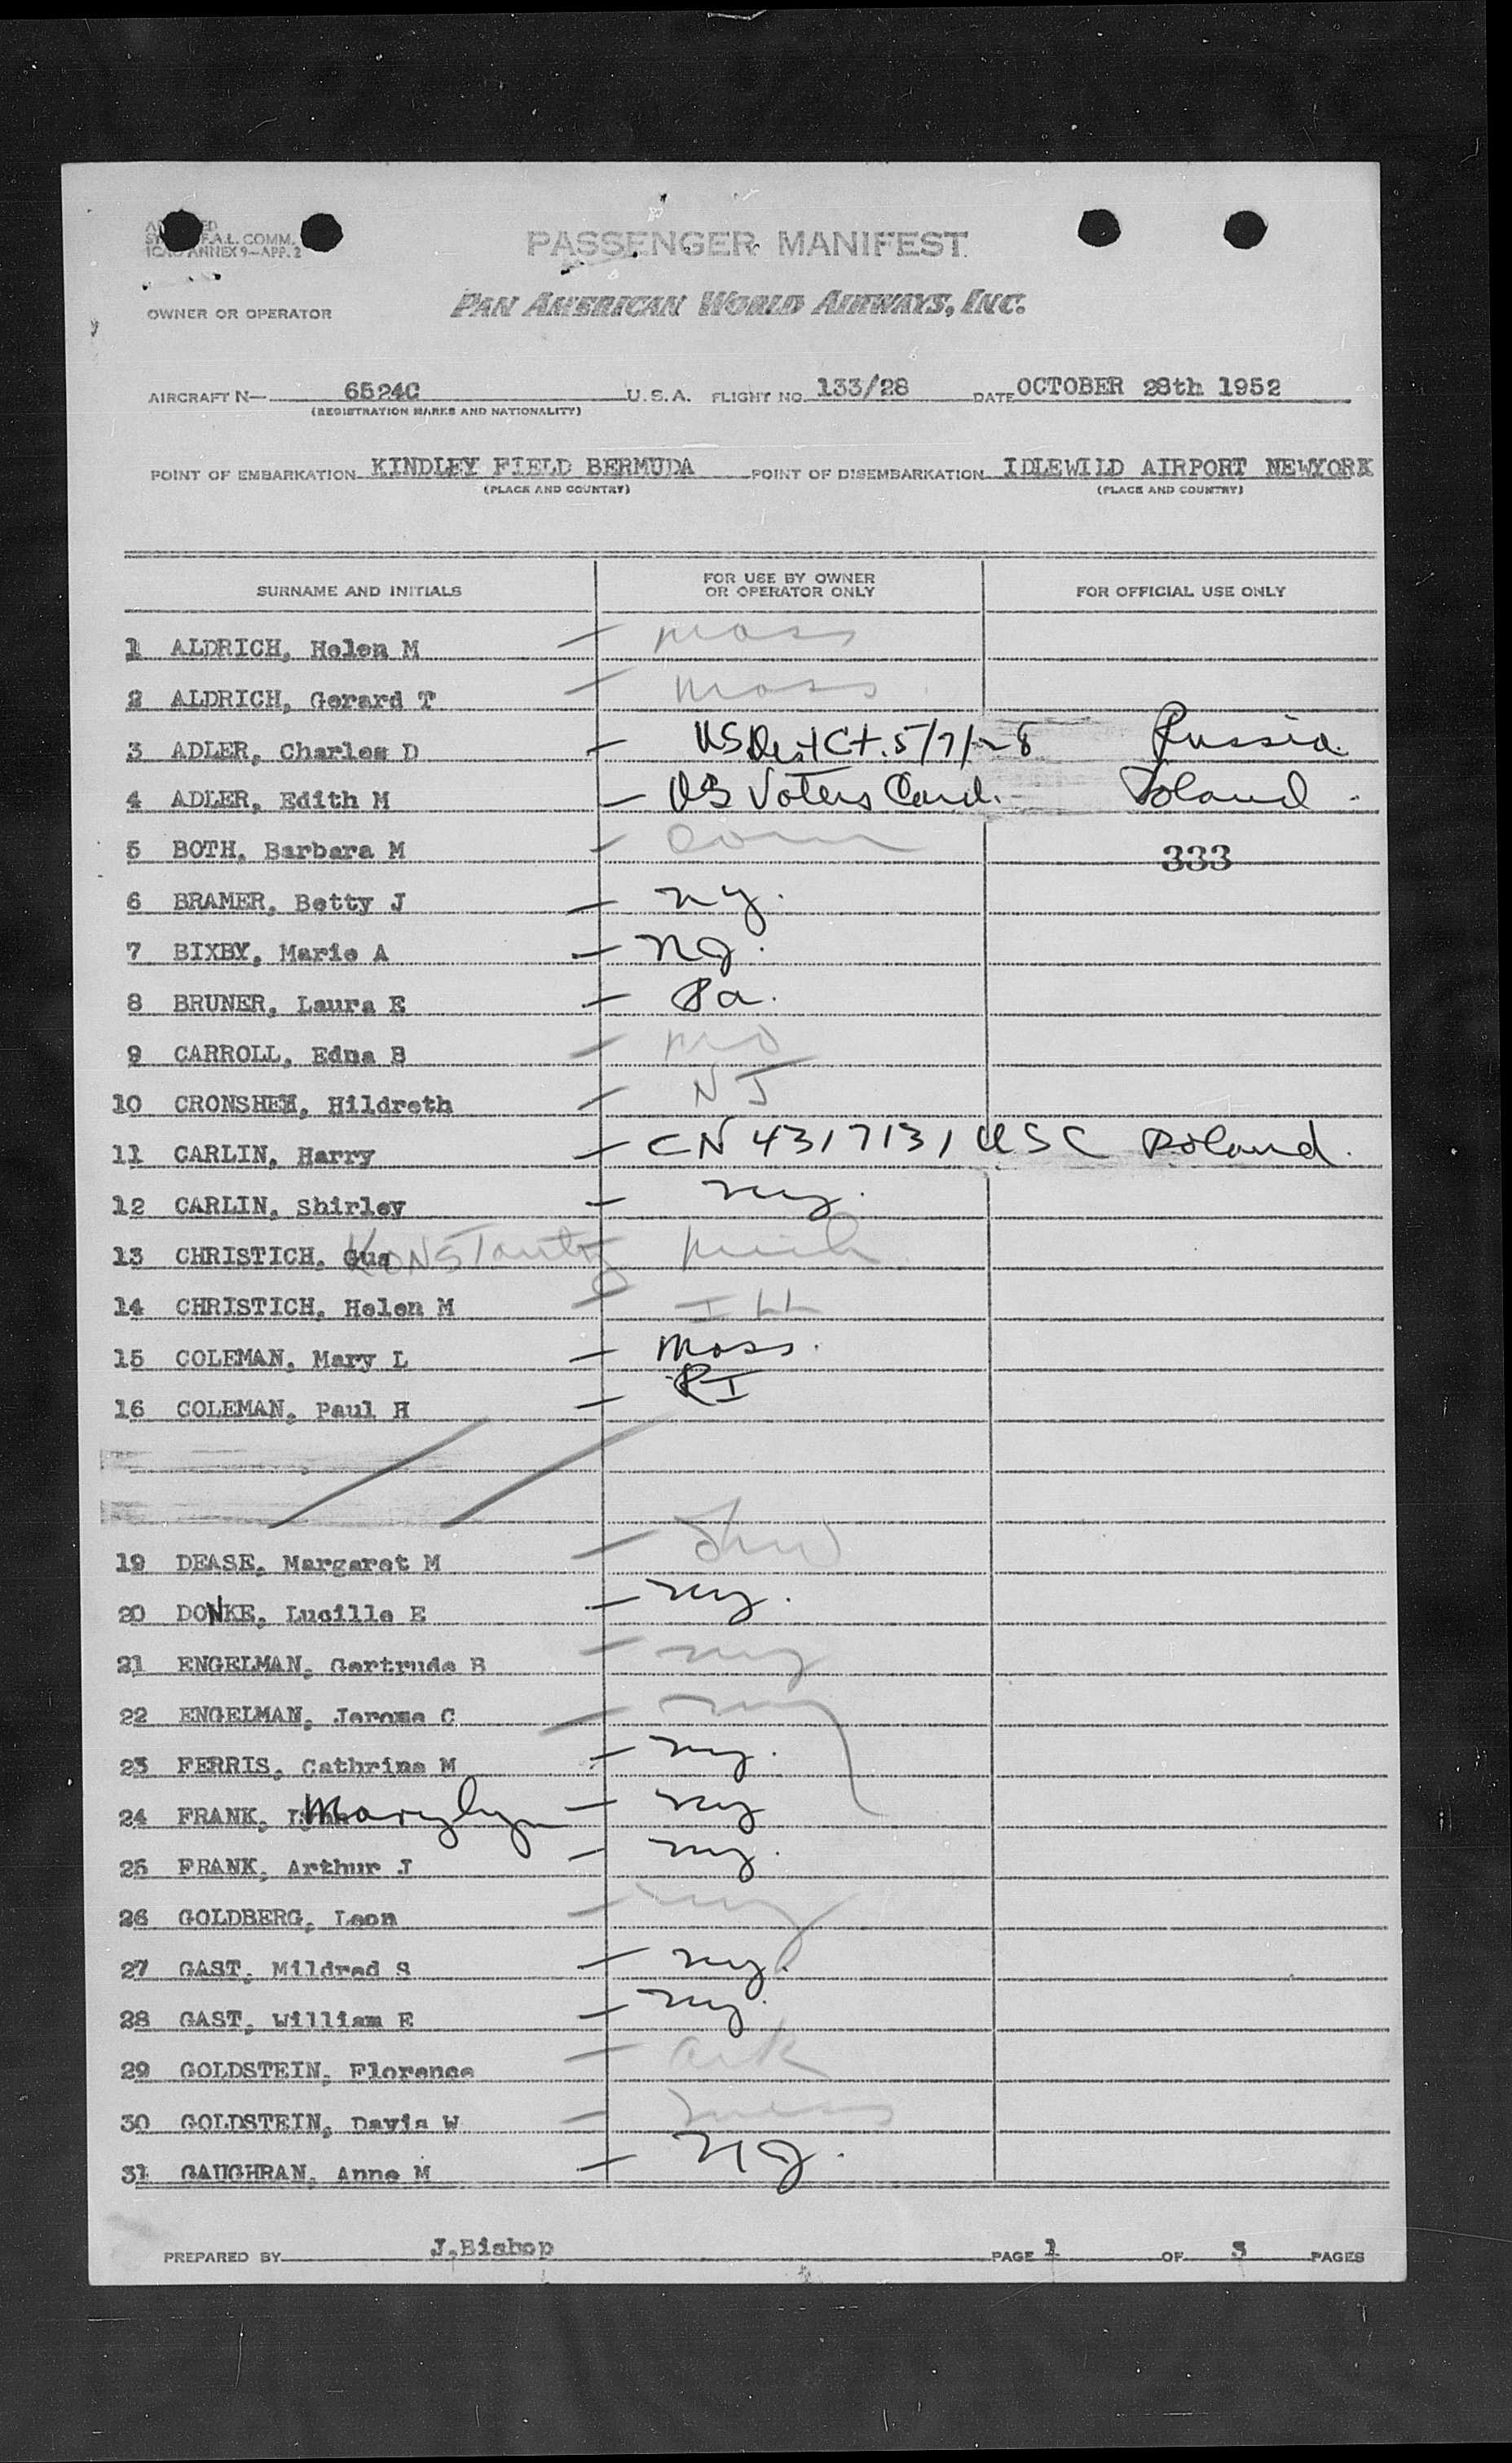 PASSENGER MANIFEST
F.A.L. COMM.
ANNEX 9—APP. 2
OWNER OR OPERATOR PAN AMERICAN WORLD AIRWAYS, INC.
AIRCRAFT N— 6524C U.S.A. FLIGHT NO. 133/28 DATE OCTOBER 28th 1952
(REGISTRATION MARKS AND NATIONALITY)
POINT OF EMBARKATION KINDLEY FIELD BERMUDA POINT OF DISEMBARKATION IDLEWILD AIRPORT NEWYORK
(PLACE AND COUNTRY) (PLACE AND COUNTRY)
SURNAME AND INITIALS FOR USE BY OWNER OR OPERATOR ONLY FOR OFFICIAL USE ONLY
1 ALDRICH, Helen M — Mass
2 ALDRICH, Gerard T — Mass
3 ADLER, Charles D — US Dist Ct. 5/7/28 Russia
4 ADLER, Edith M — US Voters Card. Poland.
5 BOTH, Barbara M — Conn 333
6 BRAMER, Betty J — NY.
7 BIXBY, Marie A — NJ.
8 BRUNER, Laura E — Pa.
9 CARROLL, Edna B — MO
10 CRONSHEM, Hildreth — NJ
11 CARLIN, Harry — CN 4317131 USC Poland.
12 CARLIN, Shirley — NY.
13 CHRISTICH, Gus Mich
14 CHRISTICH, Helen M — ILL
15 COLEMAN, Mary L — Mass.
16 COLEMAN, Paul H — RI
19 DEASE, Margaret M —
20 DONKE, Lucille E — NY.
21 ENGELMAN, Gertrude B — NY
22 ENGELMAN, Jerome C — NY
23 FERRIS, Cathrine M — NY.
24 FRANK, Marylyn — NY
25 FRANK, Arthur J — NY.
26 GOLDBERG, Leon — NY
27 GAST, Mildred S — NY.
28 GAST, William E — NY.
29 GOLDSTEIN, Florence — Ark
30 GOLDSTEIN, Davis W —
31 GAUGHRAN, Anne M — NJ.
PREPARED BY J.Bishop PAGE 1 OF 3 PAGES